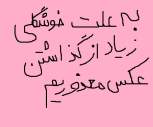 به علت خوشگلی
زیاد از گذاشتن
عکس معذوریم